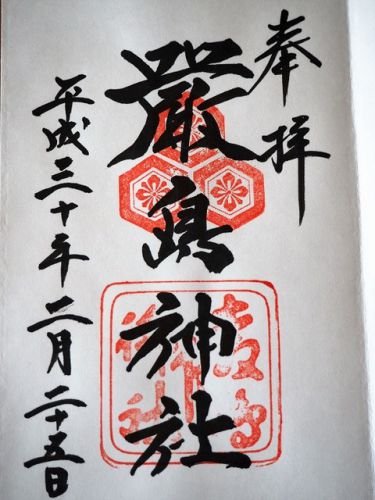 奉拝
厳島神社
平成三十年二月二十五日